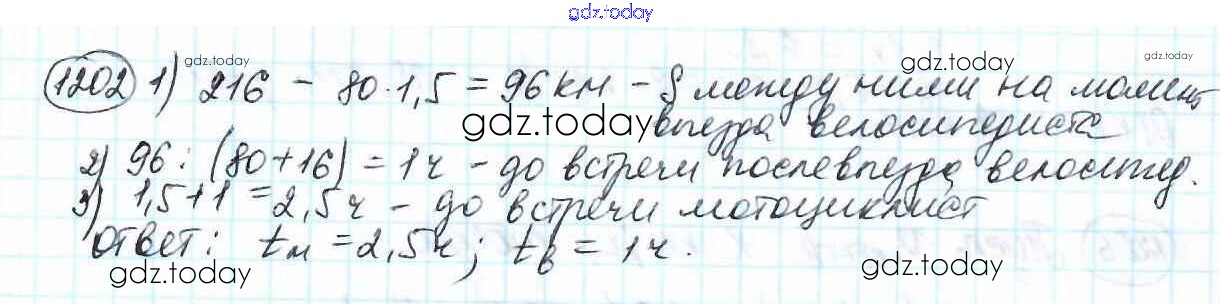 gdz.today
gdz.today
gdz.today
1202 1) 216 - 80·1,5 = 96 км - S между ними на момент
gdz.today выезда велосипедиста
2) 96 : (80+16) = 1ч - до встречи после выезда велосипед.
3) 1,5+1 = 2,5ч - до встречи мотоциклист
ответ: tм = 2,5ч; tв = 1ч.
gdz.today
gdz.today